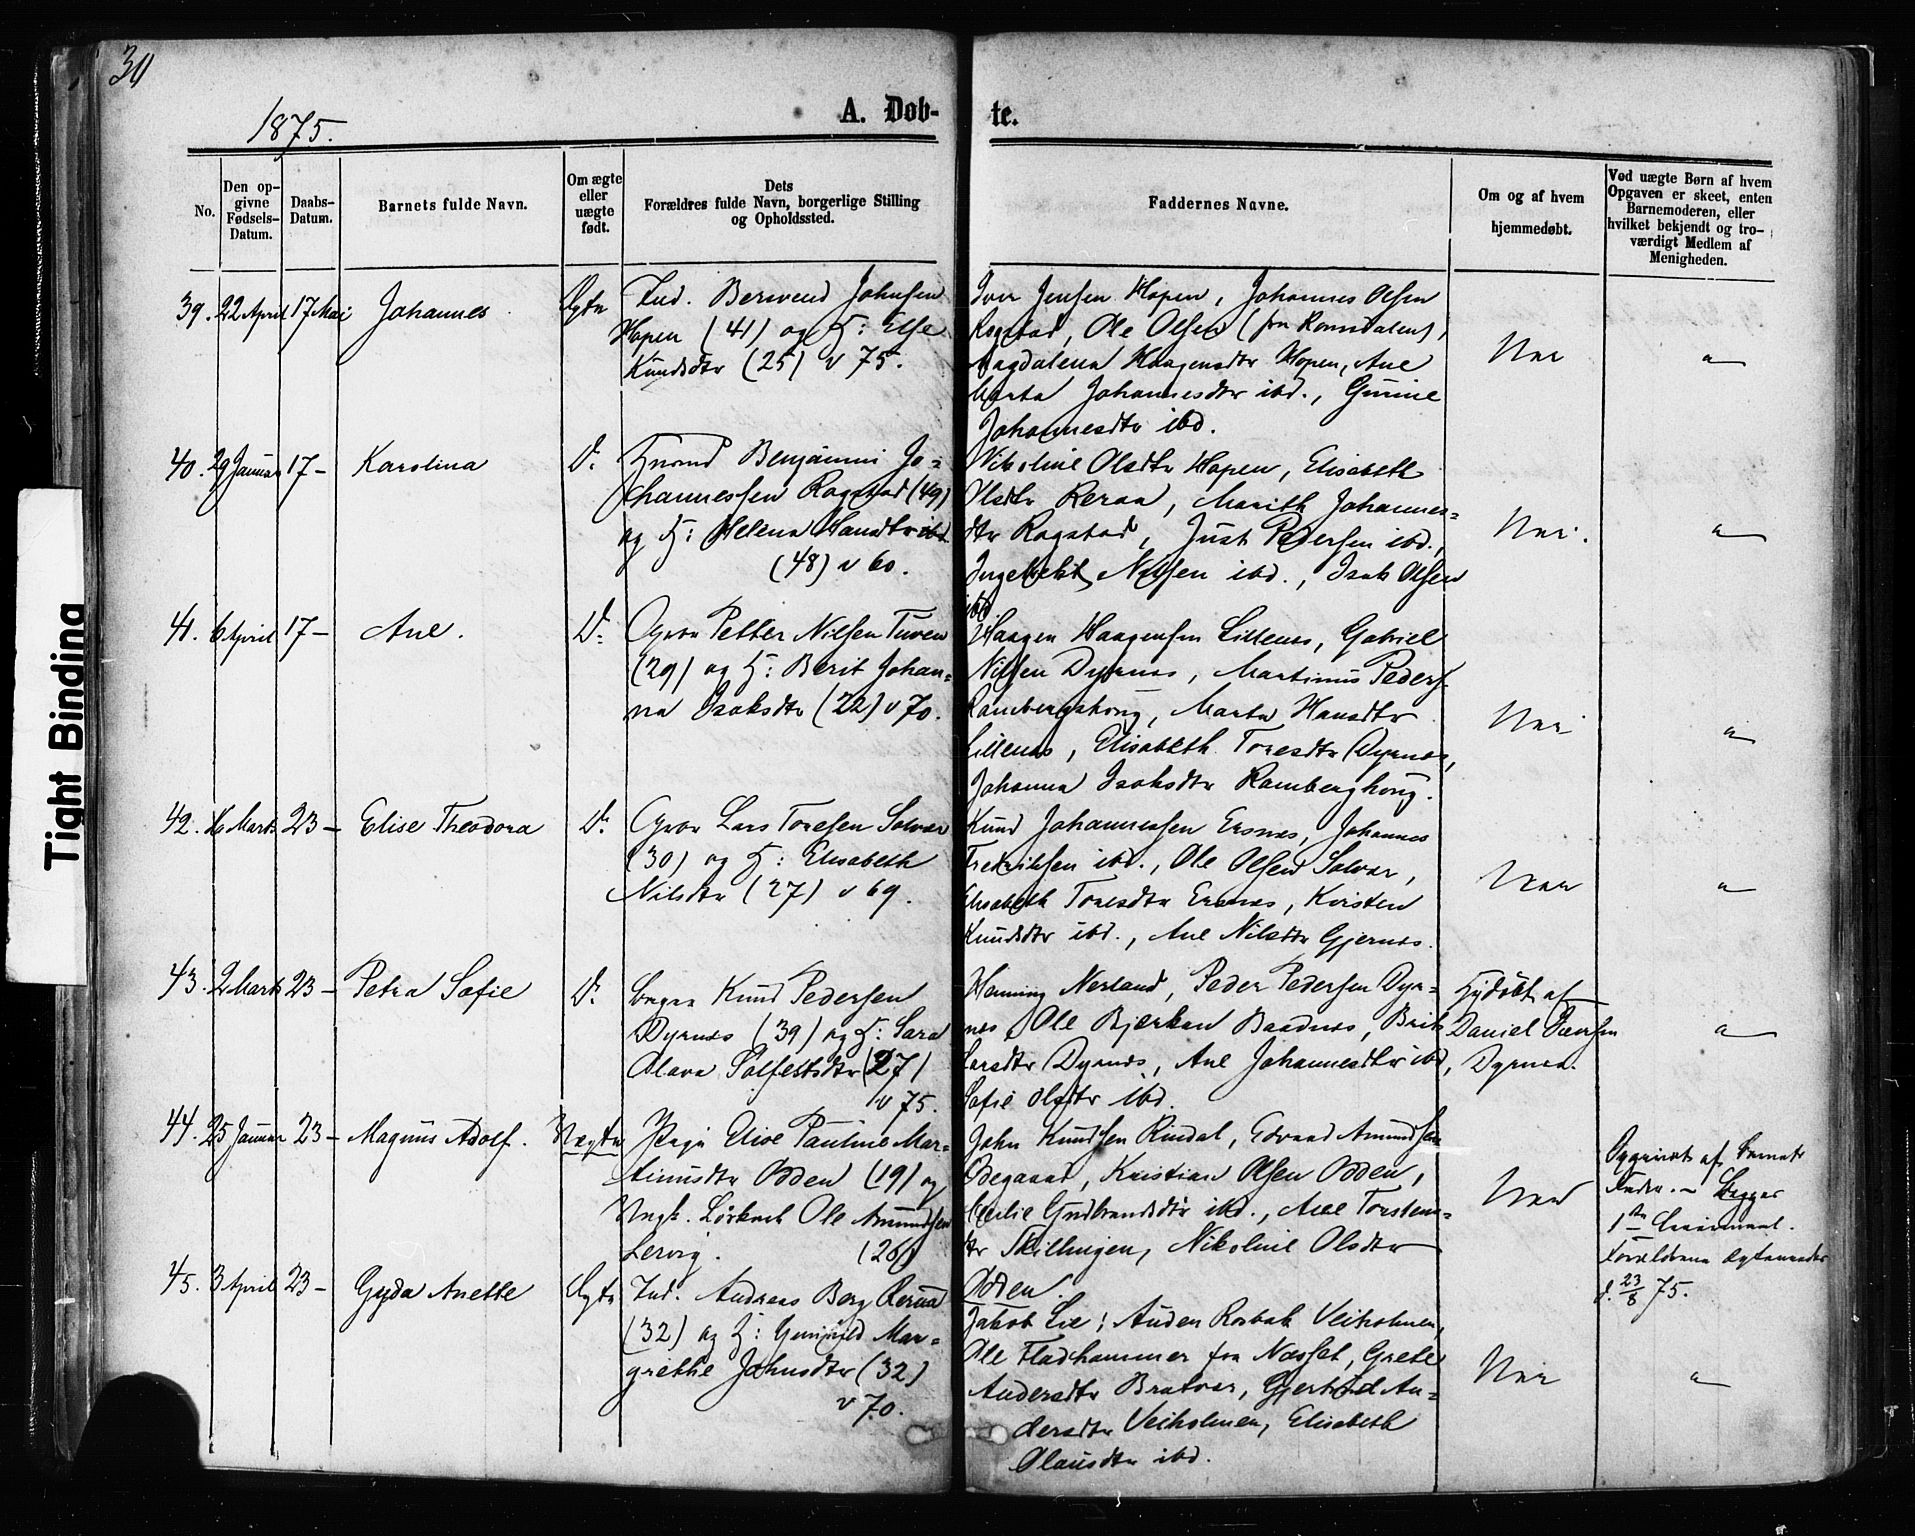 30
1875.
A. Døb-
te.
No.
Den op-
givne
Fødsels-
Datum.
Daabs-
Datum.
Barnets fulde Navn.
Om ægte
eller
uægte
født.
Dets
Forældres fulde Navn, borgerlige Stilling
og Opholdssted.
Faddernes Navne.
Om og af hvem
hjemmedøbt.
Ved uægte Børn af hvem
Opgaven er skeet, enten
Barnemoderen, eller
hvilket bekjendt og tro-
værdigt Medlem af
Menigheden.
39. 22 April 17 Mai Johannes Ind. Johnsen
Hopen (41) og H: Else
Knudsdtr (25) v 75.
Iver Jensen Hopen, Johannes Olsen
Rogstad, Ole Olsen (fra Romsdalen),
Magdalena Haagensdtr Hopen, Ane
Marta Johannesdtr ibd., Gurine
Johannesdtr ibd.
Nei
"
40. 29 Januar 17 - Karolina D. Benjamin Jo-
hannessen Rogstad (49)
og H: Helena Hansdtr ibd.
(48) v 60.
Nikoline Olsdtr Hopen, Elisabeth
Olsdtr Reraa, Marith Johannes-
dtr Rogstad, Just Pedersen ibd.,
Ingebrikt Nilsen ibd., Isak Olsen
ibd
Nei.
"
41. 6 April 17 - Ane. D. Petter Nilsen Tuven
(29) og H: Berit Johan-
na Isaksdtr (22) v 70.
Haagen Haagensen Lillenes, Gabriel
Nilsen Dyrnes, Martinus Peders.
Rambergshoug, Marta Hansdtr
Lillenes, Elisabeth Toresdtr Dyrnes,
Johanna Isaksdtr Ramberghoug.
Nei
"
42. Marts 23 - Elise Theodora D. Lars Toresen Solvær
(30) og H: Elisabeth
Nilsdtr (27) v 69.
Knud Johannessen Ersnes, Johannes
Fredriksen ibd., Ole Olsen Solvær,
Elisabeth Toresdtr Ersnes, Kirsten
Knudsdtr ibd., Ane Nilsdtr Gjernes.
Nei
"
43. 2 Marts 23 - Petra Sofie D. Knud Pedersen
Dyrnes (39) og H: Sara
Olava Solfestsdtr (27)
v 75.
Henning Nerland, Peder Pedersen Dyr-
nes, Ole Bjerkan Baadnes, Brit
Larsdtr Dyrnes, Ane Johannesdtr ibd,
Sofie Olsdtr ibd.
Hjdøbt af
Daniel Iversen
Dyrnes.
"
44. 25 Januar 23 - Magnus Adolf. Uægte Pige Elise Pauline Mar-
tinusdtr Odden (19) og
Ungk. Ole Amundsen
Lervig. (26)
John Knudsen Rindal, Edvard Amundsen
Ødegaard, Kristian Olsen Odden,
Gudbrandsdtr ibd., Ane Torstens-
dtr Skillingen, Nikoline Olsdtr
Odden.
Nei
Opgivet af Barnets
Fader. - Begges
1ste Leiermaal.
Forældrene
d. 23/8 75.
45. 3 April 23 - Gyda Anette Ægte Ind. Andreas Berg Reraa
(32) og H: Gunhild Mar-
grethe Johnsdtr (32)
v 70.
Jakob Lie, Auden Rosbak Veiholmen,
Ole Fladhammer fra Næsset, Grete
Andersdtr Bratvær, Gjertrud An-
dersdtr Veiholmen, Elisabeth
Olausdtr ibd.
Nei
"
Tight Binding